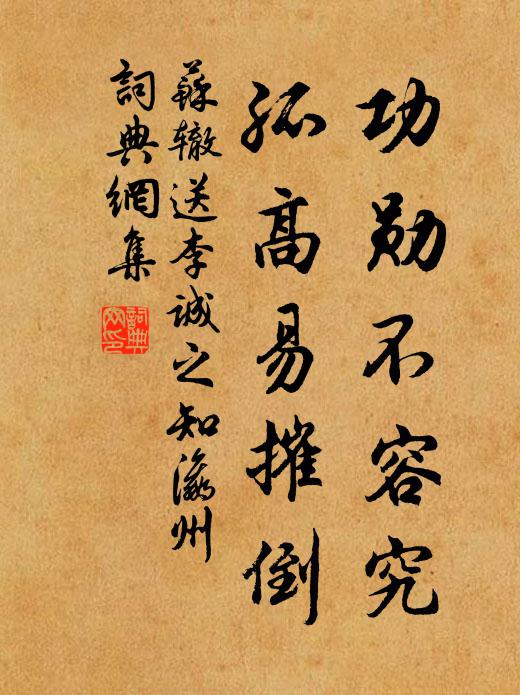 功勋不容究
孤高易摧倒
蘇辙送李诚之知瀛州
詞典網集
詞典网印